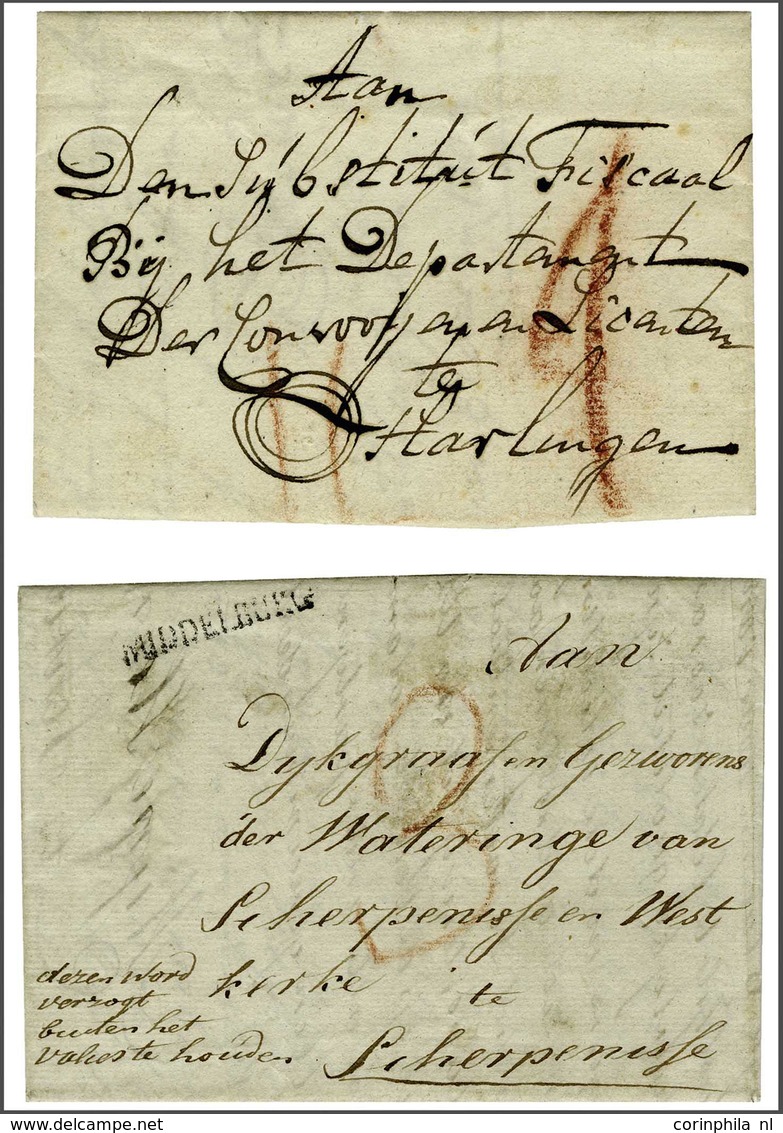 Aan
Den Súbstitút Fiscaal
Bÿ het Departament
Der Convooijen en Licenten
te
Harlingen
4
MIDDELBURG
Aan
Dykgraaf en Gezworens
der Wateringe van
Scherpenisse en West
kerke te
Scherpenisse
3
dezen word
verzogt
buiten het
te houden
www.delcampe.net
corinphila nl